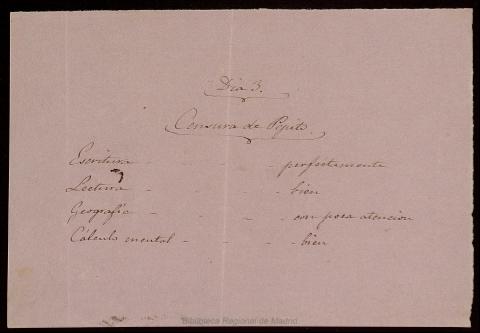 Día 3.
Censura de Pepito.
Escritura - - - - perfectamente
Lectura - - - - bien
Geografía - - - - con poca atencion
Cálculo mental - - - - bien
Biblioteca Regional de Madrid